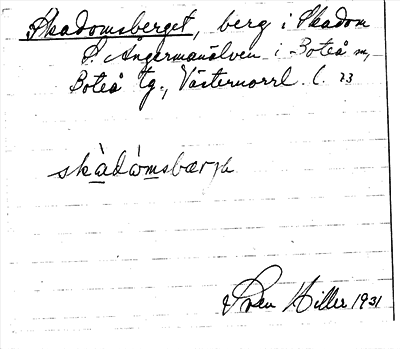 Skadomsberget, berg i Skadom
S. Ångermanälven i Boteå sn,
Boteå tg., Västernorrl. l. 23
skàdòmsbærjk
Sven Hiller 1931